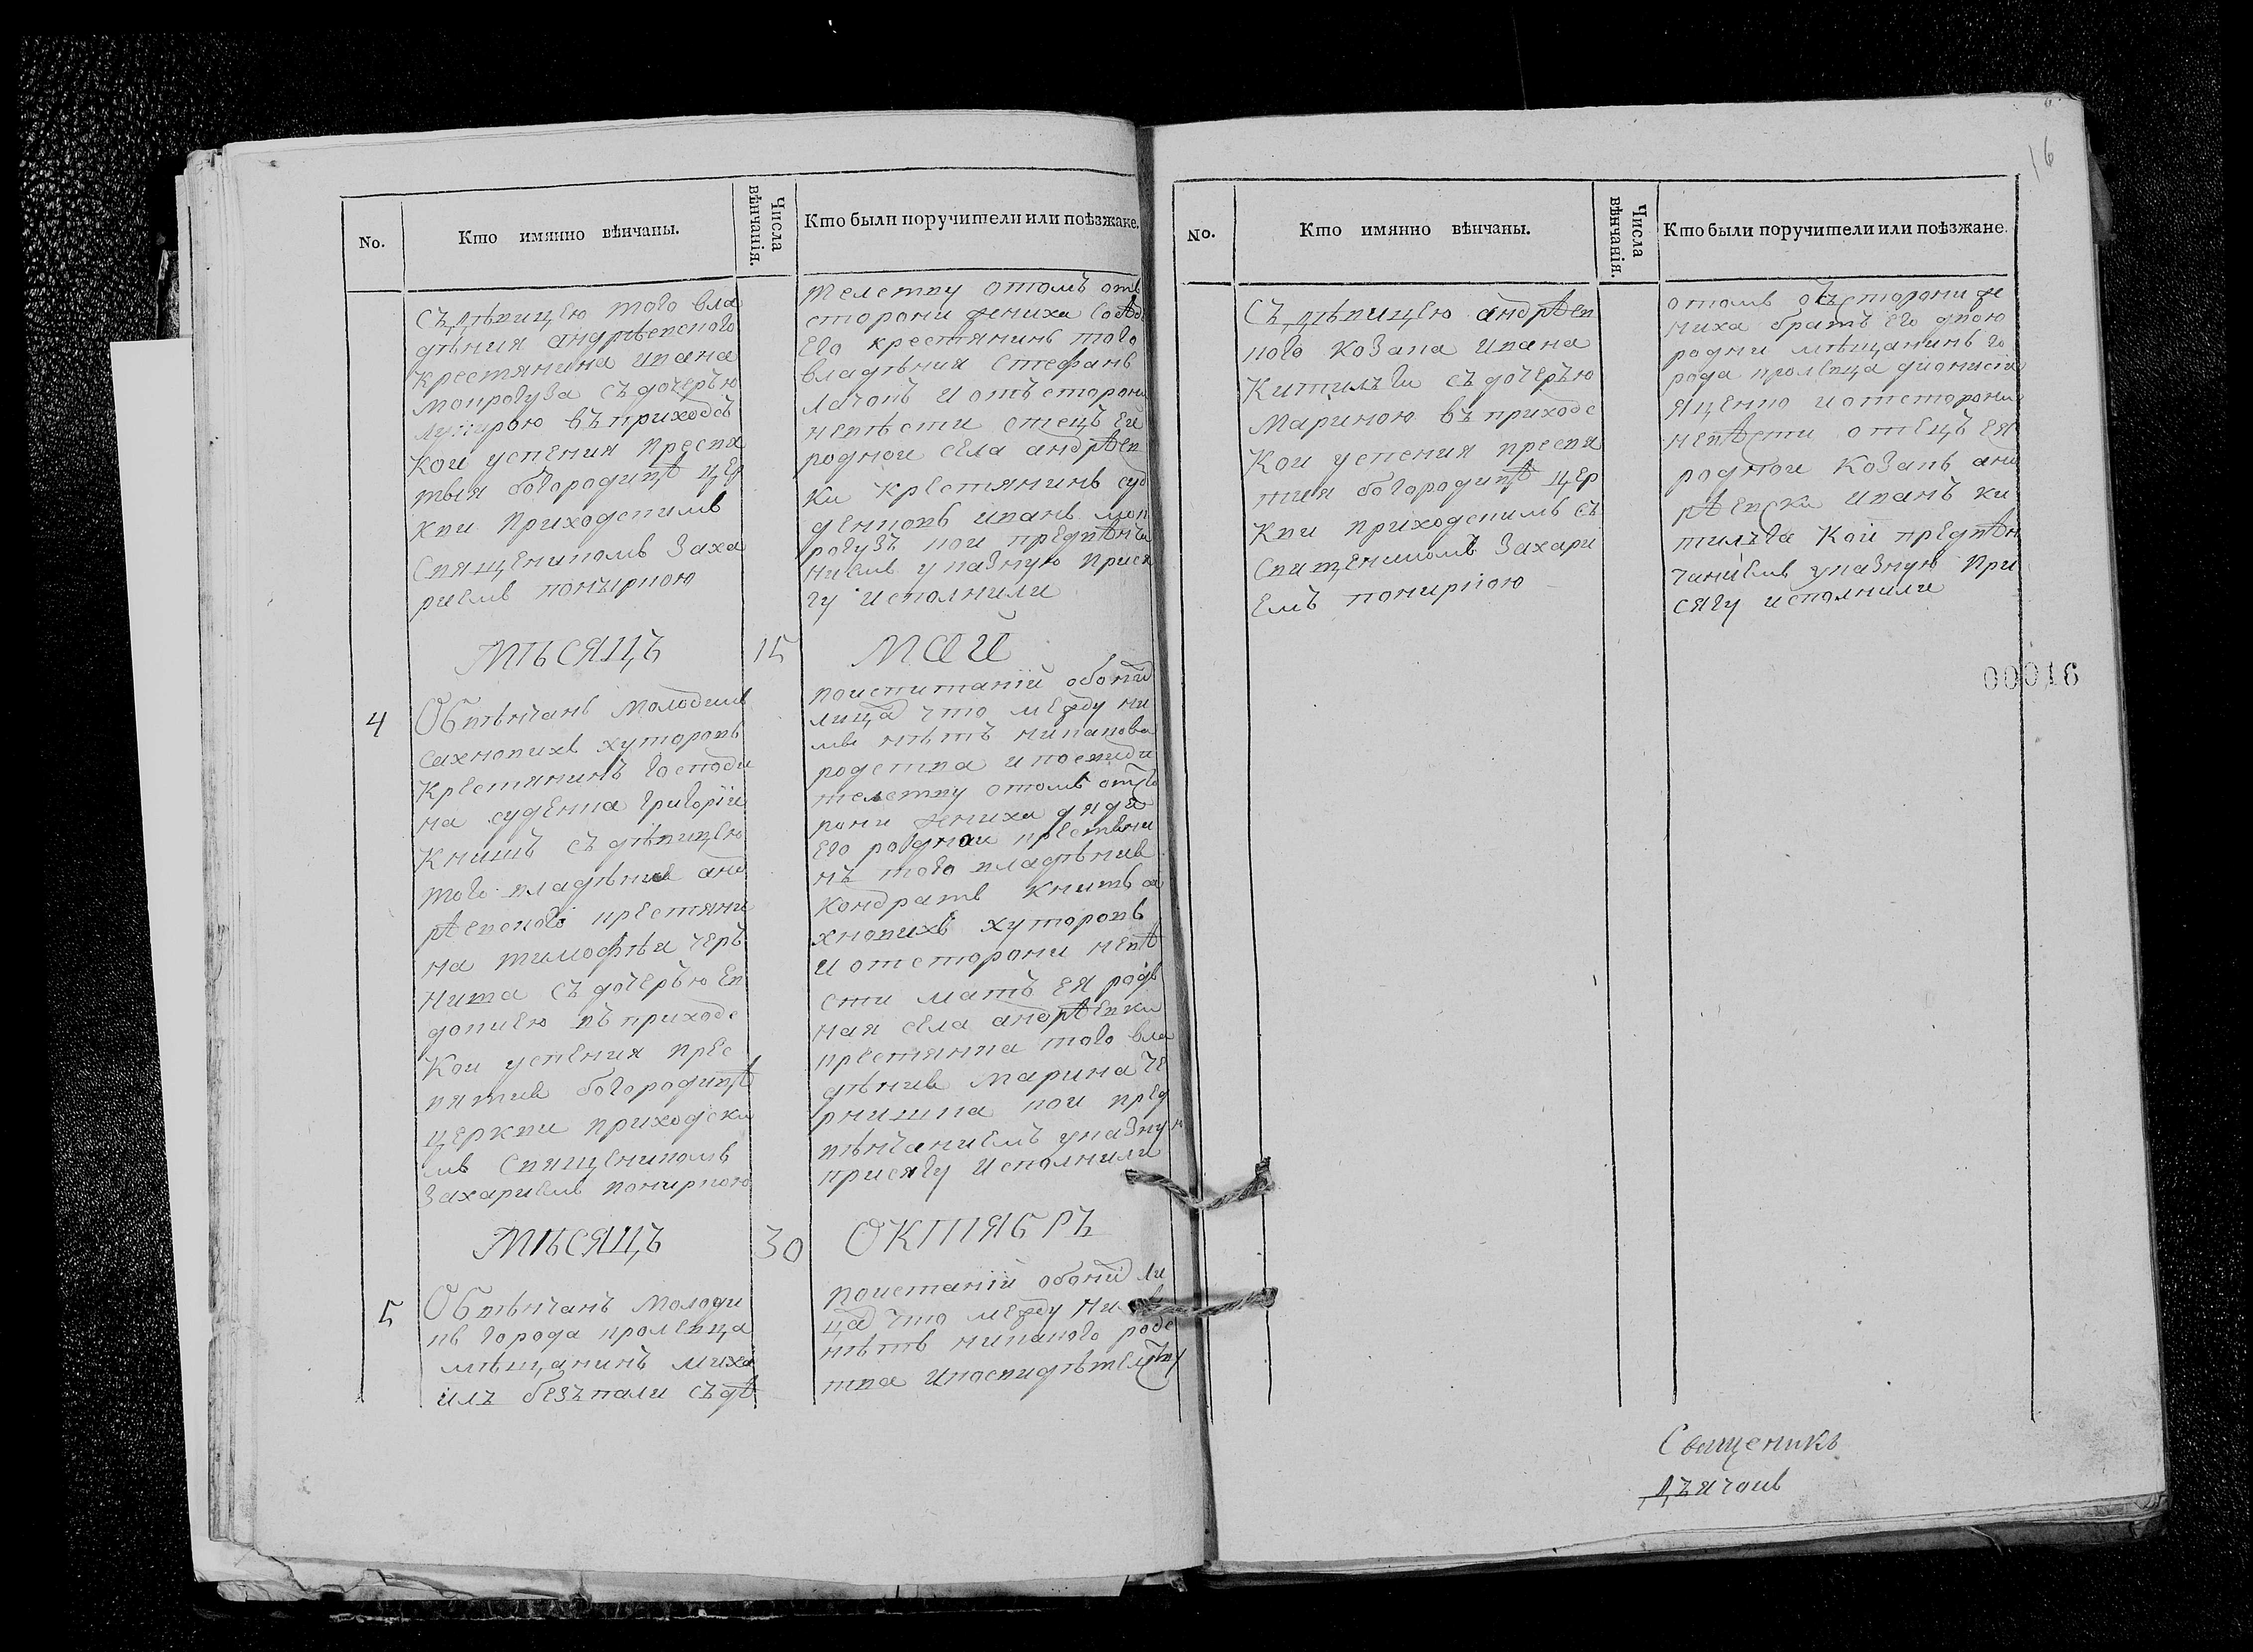 No.
Кто имянно вѣнчаны.
Числа вѣнчанія.
Кто были поручители или поѣзжане.
съ дѣвицею того вла
дѣния андрѣевского
крестянина ивана
мопрогуза съ дочерью
въ приходс
кой успения пресвя
тыя богородицѣ цер
кви приходскимъ
священикомъ Заха
риемъ
телству отомъ отъ
сторони жениха сосѣд
его крестянинъ того
владѣния Стефанъ
и отъ сторони
невѣсти отецъ ей
родной села андрѣев
ки крестянинъ суд
денковъ иванъ моп
рогузъ кои предвѣнча
ниемъ указную прися
гу исполнили
МѢСЯЦЪ
15
МАЙ
4
Обвѣнчанъ молодикъ
сахновихъ хуторовъ
крестянинъ господи
на суденка григорий
Книшъ съ дѣвицею
того владѣния анд
рѣевского крестяни
на тимофѣя черъ
ниша съ дочерью ев
докиею въ приходс
кой успения прес
вятия богородицѣ
церкви приходски
мъ священикомъ
Захариемъ
поиспитаний обоид
лицъ что между ни
ми нѣтъ никаково
родства и посвиди
телству отомъ отсто
рони жениха дядя
его родной крестяни
нъ того владѣния
кондратъ книшъ са
хновихъ хуторовъ
и отсторони невѣ
сти мать ея родъ
ная села андрѣевки
крестянка того вла
дѣния марина че
рнишка кои пред
вѣнчаниемъ указную
присягу исполнили
МѢСЯЦЪ
30
ОКТЯБРЪ
5
Обвѣнчанъ молоди
къ города кролевца
мѣщанинъ миха
илъ безъпали съ дѣ
поистаний обоид ли
цъ что между ними
нѣтъ никакого родс
тва и посвидѣтелству
16
No.
Кто имянно вѣнчаны.
Числа вѣнчанія.
Кто были поручители или поѣзжане.
съ дѣвицею андрѣев
кого козака ивана
китилъги съ дочерью
мариною въ приходс
кой успения пресвя
тия богородицѣ цер
кви приходскимъ съ
священикомъ Захари
емъ
отомъ отъ сторони же
ниха братъ его двою
родни мѣщанинъ го
рода кролевца дионисий
яценко и отсторони
невѣсти отецъ ея
родной козакъ анд
рѣевски иванъ ки
тилъга кои предвѣн
чаниемъ указную при
сягу исполнили
00016
Священикъ
Дъячокъ